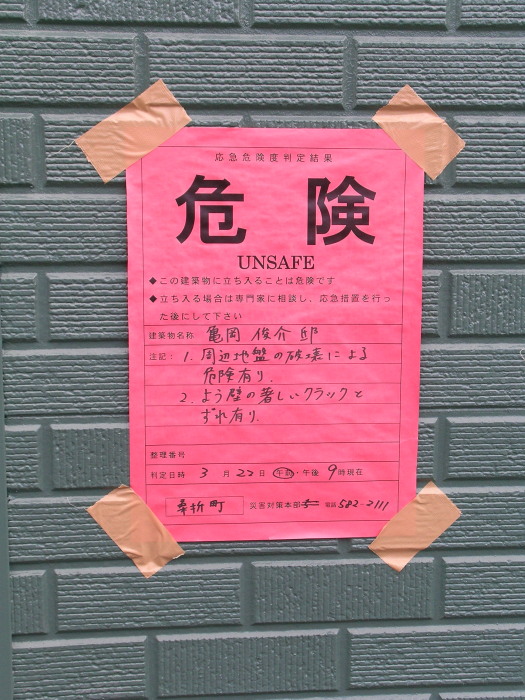 応急危険度判定結果
危 険
UNSAFE
◆この建築物に立ち入ることは危険です
◆立ち入る場合は専門家に相談し、応急措置を行っ
た後にして下さい
建築物名称 亀岡 俊介 邸
注記: 1. 周辺地盤の破壊による
危険有り.
2. よう壁の著しいクラックと
ずれ有り.
整理番号
判定日時 3 月 22 日 午前・午後 9 時現在
桑折町 災害対策本部 電話 582-2111